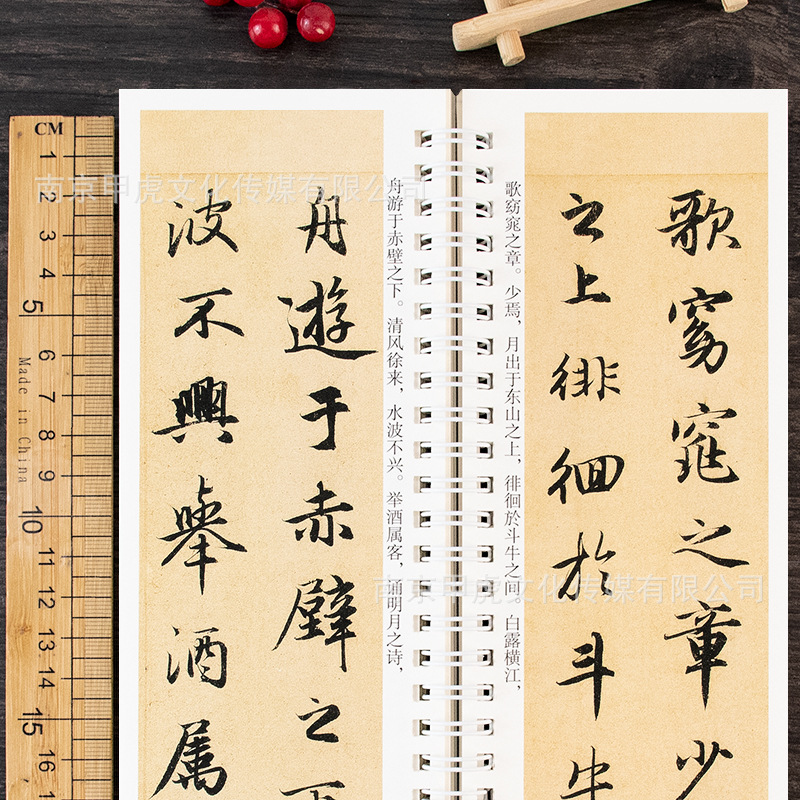 CM
1
2
3
4
5
6
7
8
9
10
11
12
13
14
15
16
Made in China
南京甲虎文化传媒有限公司
南京甲虎文化传媒有限公司
舟遊于赤壁之下
波不興舉酒属
舟游于赤壁之下。清风徐来，水波不兴。举酒属客，诵明月之诗，
歌窈窕之章。少焉，月出于东山之上，徘徊於斗牛之间。白露横江，
歌窈窕之章少
之上徘徊於斗牛